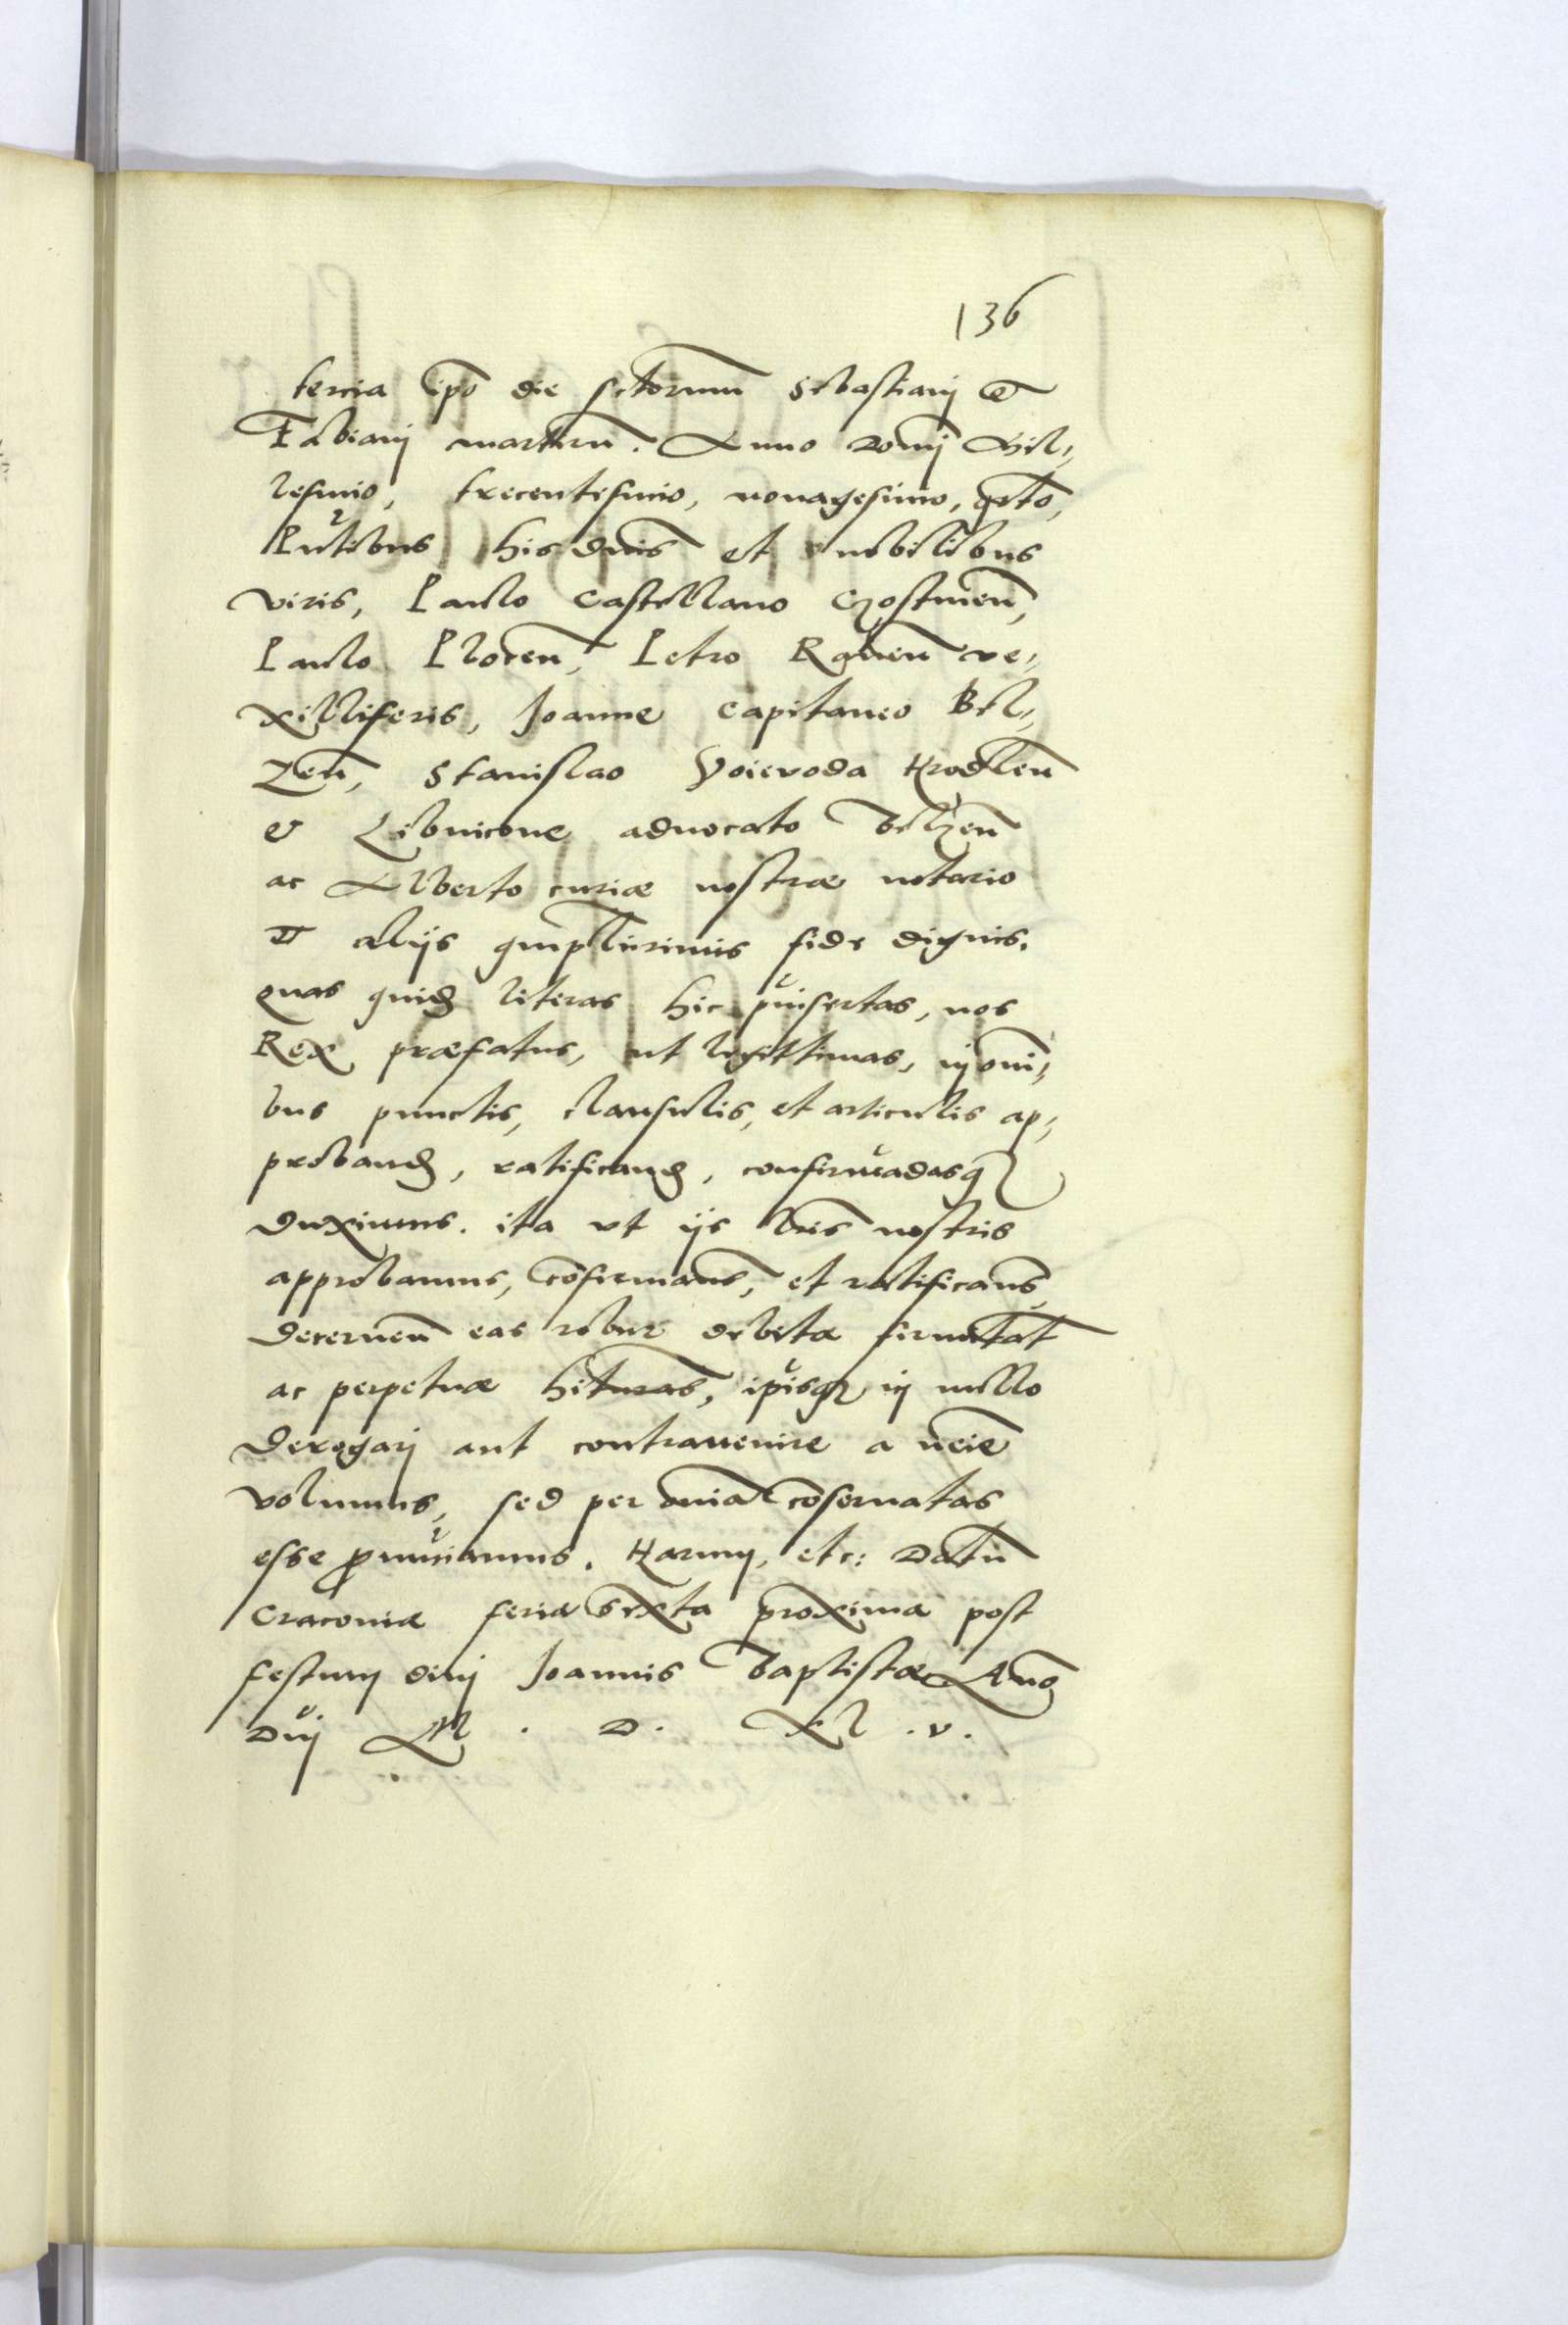 136
tercia ipo die sctorum Sebastiani et
Fabiani martirū. Anno Domi Mil„
lesimo, trecentesimo, nonagesimo, qrto,
Pntibus his dnis et nobilibus
viris, Paulo Castellano Czostnen̄,
Paulo Plocen̄, Petro Raven̄ ve„
xilliferis, Joanne Capitaneo Bel„
zen̄, Stanislao Voievoda Hrodlen̄
et Zibnicone advocato Belzen̄
ac Alberto curiæ nostræ notario
et alijs qmplurimis fide dignis.
quas quid literas hic pinsertas, nos
Rex præfatus, ut legittimas, in omi„
bus punctis, clausulis, et articulis ap„
proband, ratificand, confirmādasq
duximus. ita vt ijs lris nostris
approbamus, cōfirmams, et ratificams,
decernen̄ eas robur debitæ firmitat
ac perpetuæ hituras, ipisq in nullo
derogari aut contravenire a neīe
volumus, sed per omīa cōservatas
esse pnunciamus. Harum, etc: Datū
Cracoviæ feria sexta proxima post
festum divi Joannis Baptistæ Anno
Dni M . D . Xl . v .